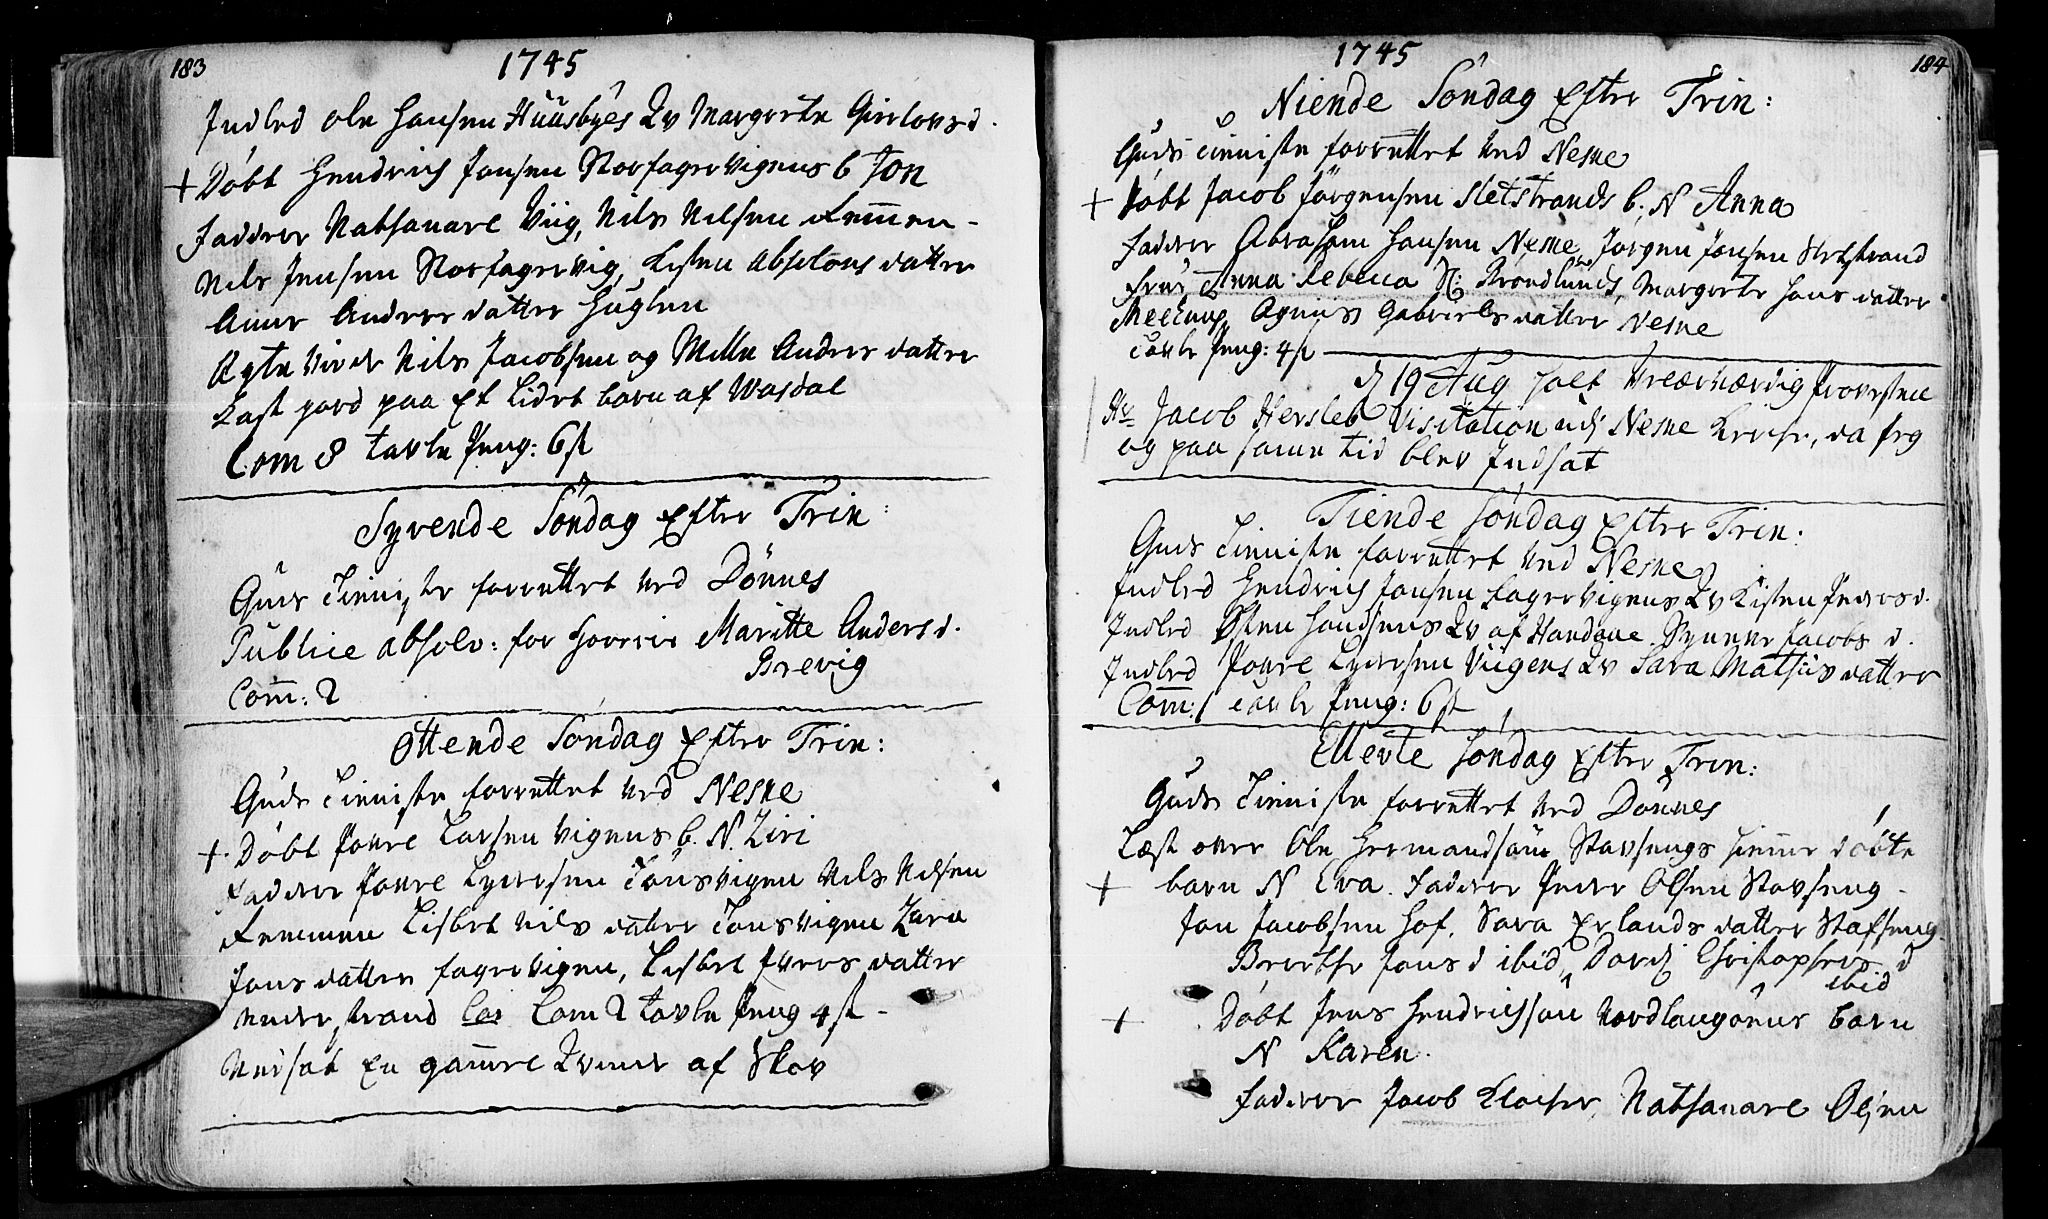 183
1745
Indled ole Hansen Huusbyes Qv Margrete Girlovsd.
+ Döbt Hendrich Jonsen Storfagervigens b Jon
Faddere Nathanael Viig, Nils Nilsen Femmen-
Nils Jensen Storfagervig, Kisten Absolons datter
Anne Anders datter Huglen
Egte Viede Nils Jacobsen og Mille Anders datter
Kast jord paa Et lidet barn af Wasdal
Com 8 tavle Peng: 6 s
Syvende Söndag Efter Trin:
Guds Tienniste forrettet ved Dönnes
Publice absolv: for horerie Maritte Anders d.
Brevig
Com̄: 2
Ottende Söndag Efter Trin:
Guds Tienniste forrettet ved Nesne
+ Döbt Povel Larsen Vigens b. N. Ziri
Faddere Povel Lydersen Tonsvigen Nils Nilsen
Femmen Lisbet Nils datter Tonsvigen Zara
Jons datter fagervigen, Lisbet Ivers datter
Understrand Com 2 tavle Peng 4 s -
Nedsat En gam̄el Qvinde af Skov
184
1745
Niende Söndag Efter Trin:
Guds Tienniste forrettet ved Nesne
+ Döbt Jacob Jörgensen Sletstrands b. N Anna
Faddere Abraham Hansen Nesne, Jörgen Jonsen Sletstrand
Frue Anna Rebecca Sl: Brondlunds, Margrete Hans datter
Agnis Gabriels datter Nesne
Tavle Peng: 4 s
d 19 Aug holt Velærværdig Provsten
Hr Jacob Hersleb Visitation udj Nesne Kirche, da jeg
og paa samme tid blev Indsat
Tiende Söndag Efter Trin:
Guds Tienniste forrettet ved Nesne
Indled Hendrich Jonsen fagervigens Qv Kisten Peders d.
Indled Östen Qv af Handnæ Synnev Jacobs d.
Indled Povel Lydersen Viigens Qv Sara Mathias datter
Com̄: 1 tavle Peng: 6 s
Ellevte Söndag Efter Trin:
Guds Tienniste forrettet ved Dönnes
Læst over Ole Hermandsöns Stavsengs hiemme döbte
+ barn N Eva. Faddere Peder Olsen Stavseng-
Jon Jacobsen Hof, Sara Erlands datter Stafseng
Berethe Jons d ibid, Dordj Christophers d
ibid
+ Döbt Jens Hendrichsön Nordlangöens barn
N Karen.
Faddere Jacob Klocher, Nathanael Olsen